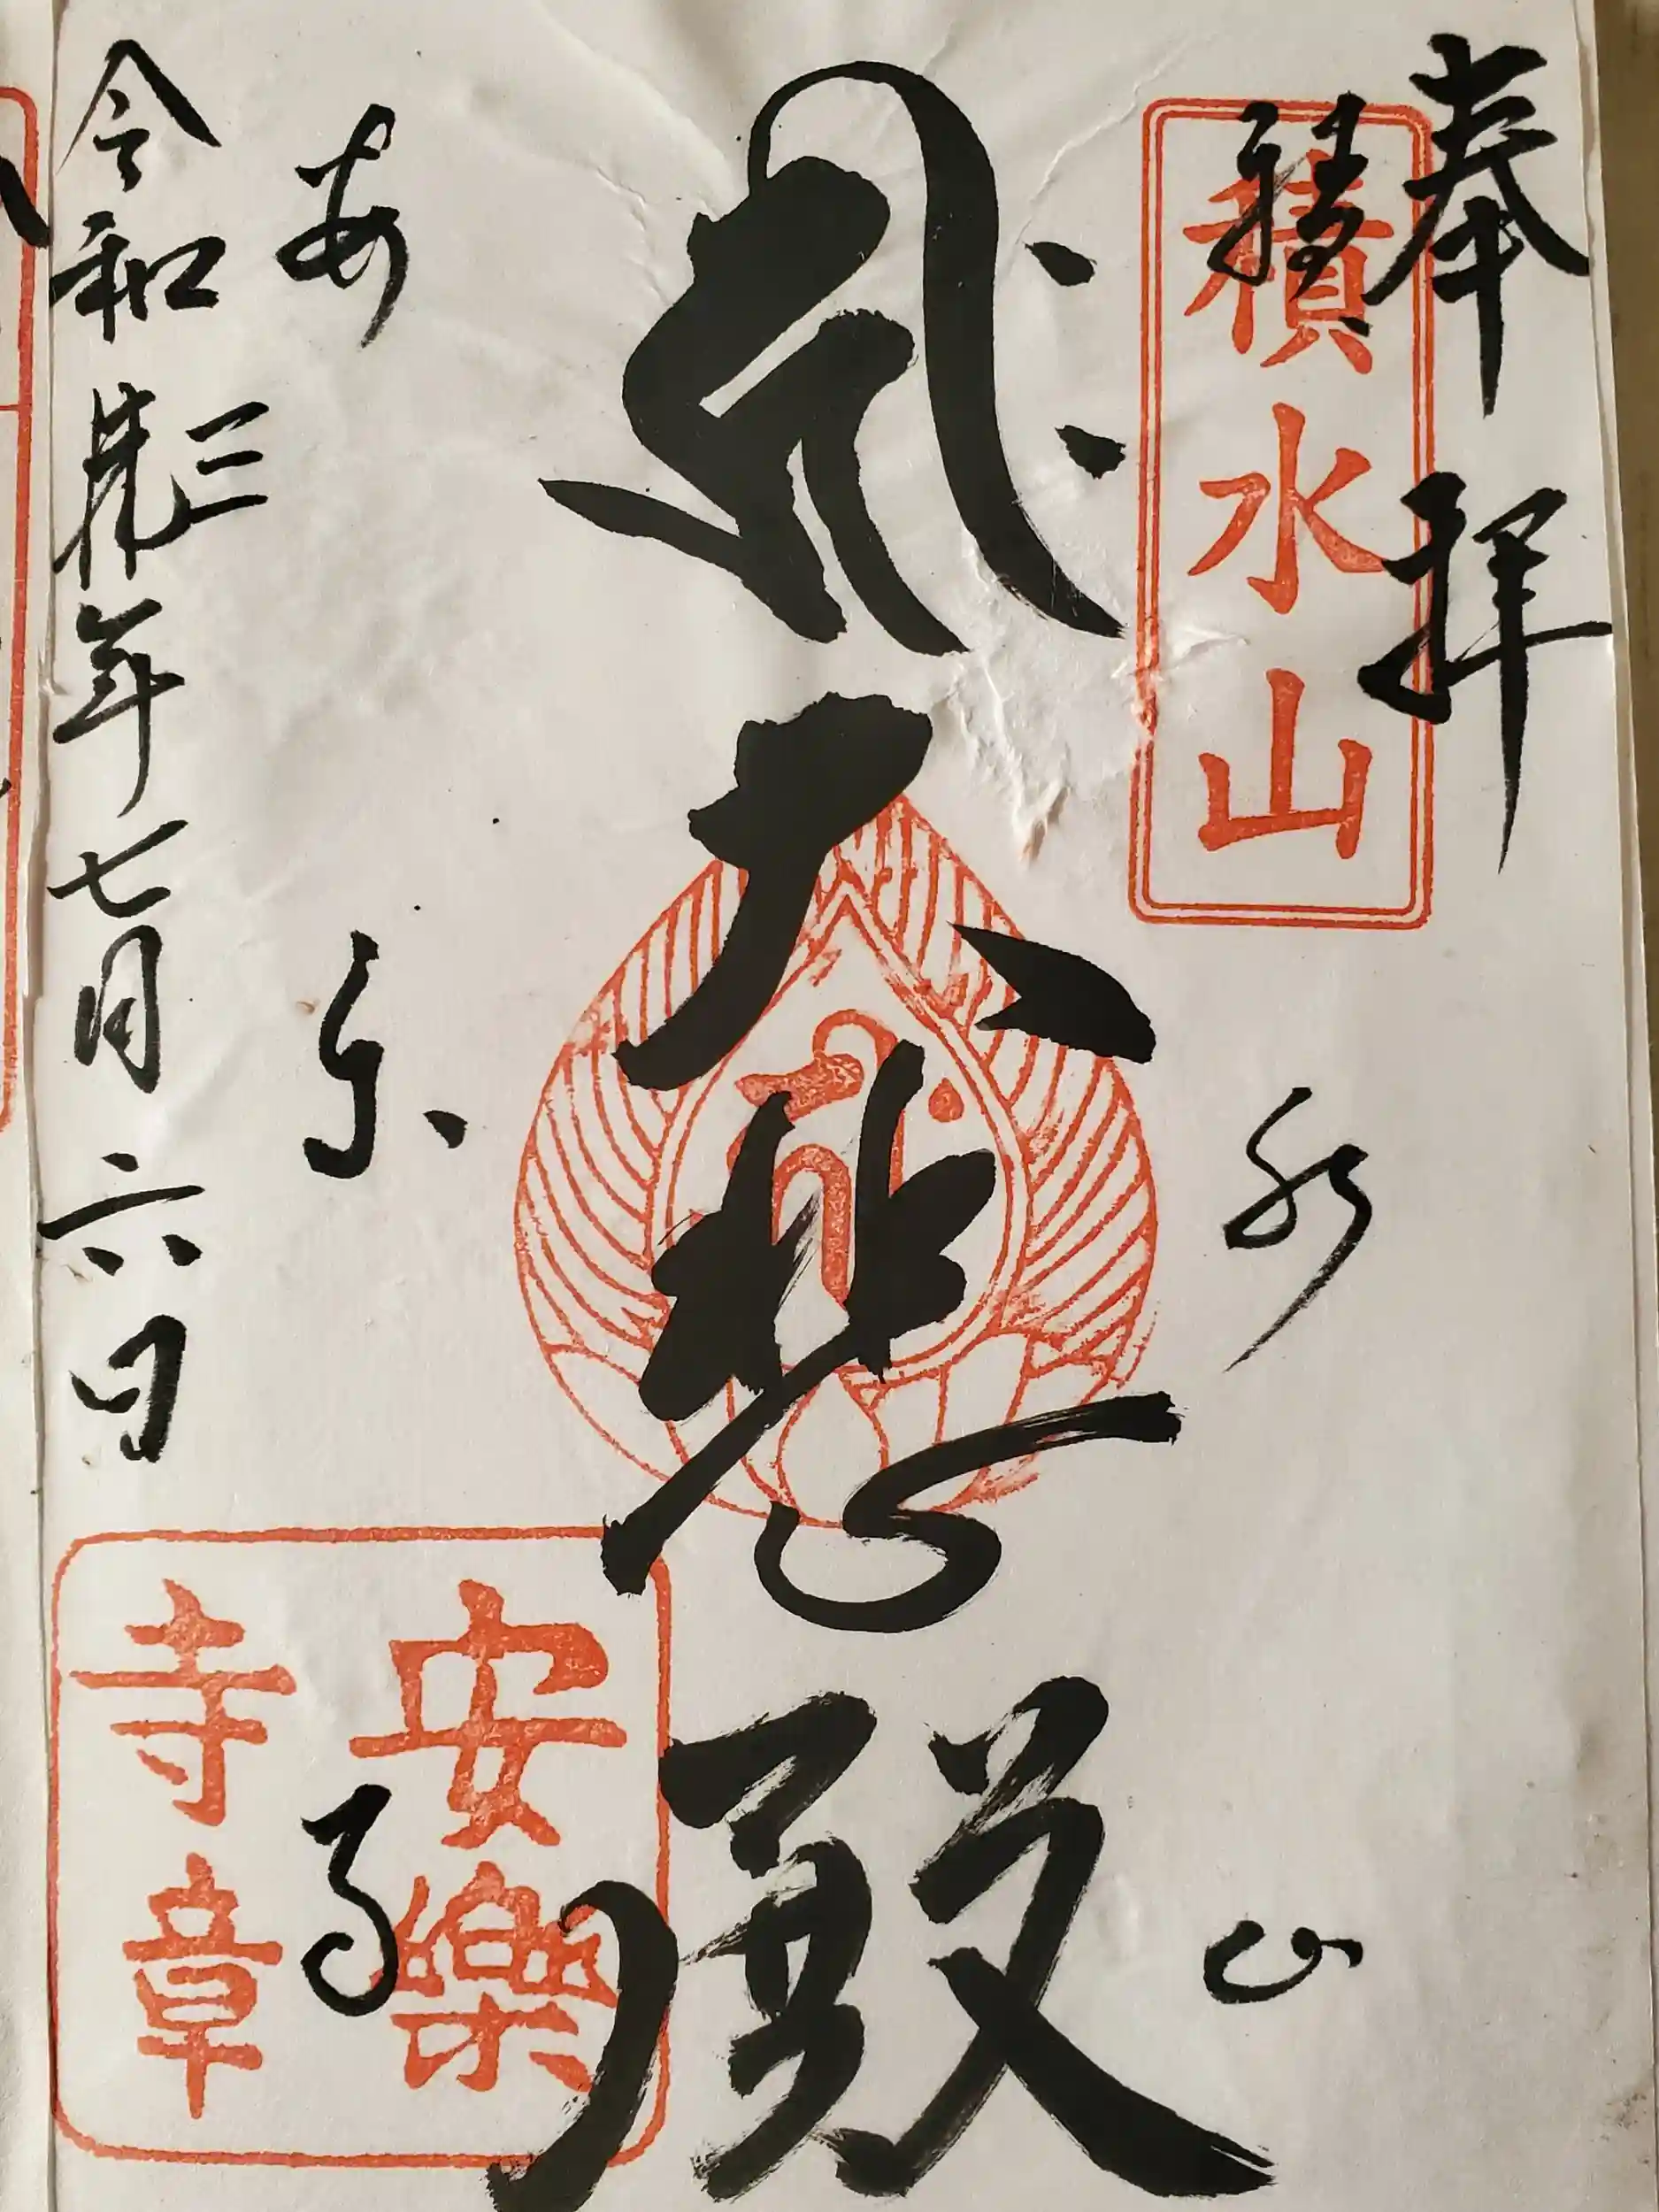 奉拝
積水山
積水山
大悲殿
安楽寺
令和三年七月六日
安樂
寺章